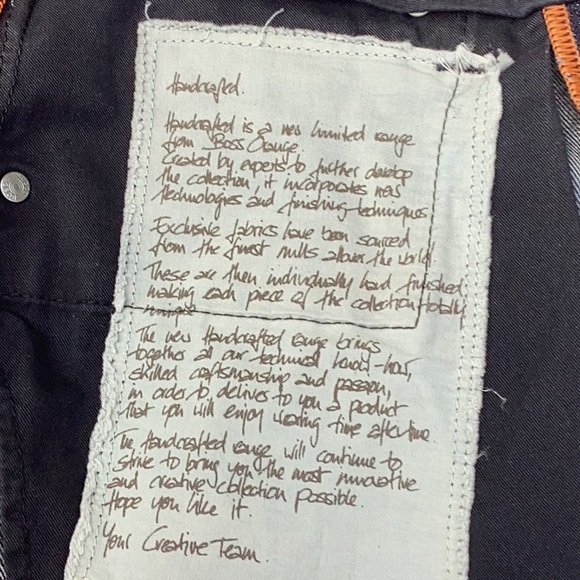 Handcrafted.
Handcrafted is a new limited range
from Boss Orange.
Created by experts to further develop
the collection, it incorporates new
technologies and finishing techniques.
Exclusive fabrics have been sourced
from the finest mills allover the world.
These are then individually hand finished,
making each piece of the collection totally
unique.
The new Handcrafted range brings
together all our technical know-how,
skilled craftsmanship and passion,
in order to delivers to you a product
that you will enjoy wearing time after time.
The Handcrafted range will continue to
strive to bring you the most innovative
and creative collection possible.
Hope you like it.
Your Creative Team.